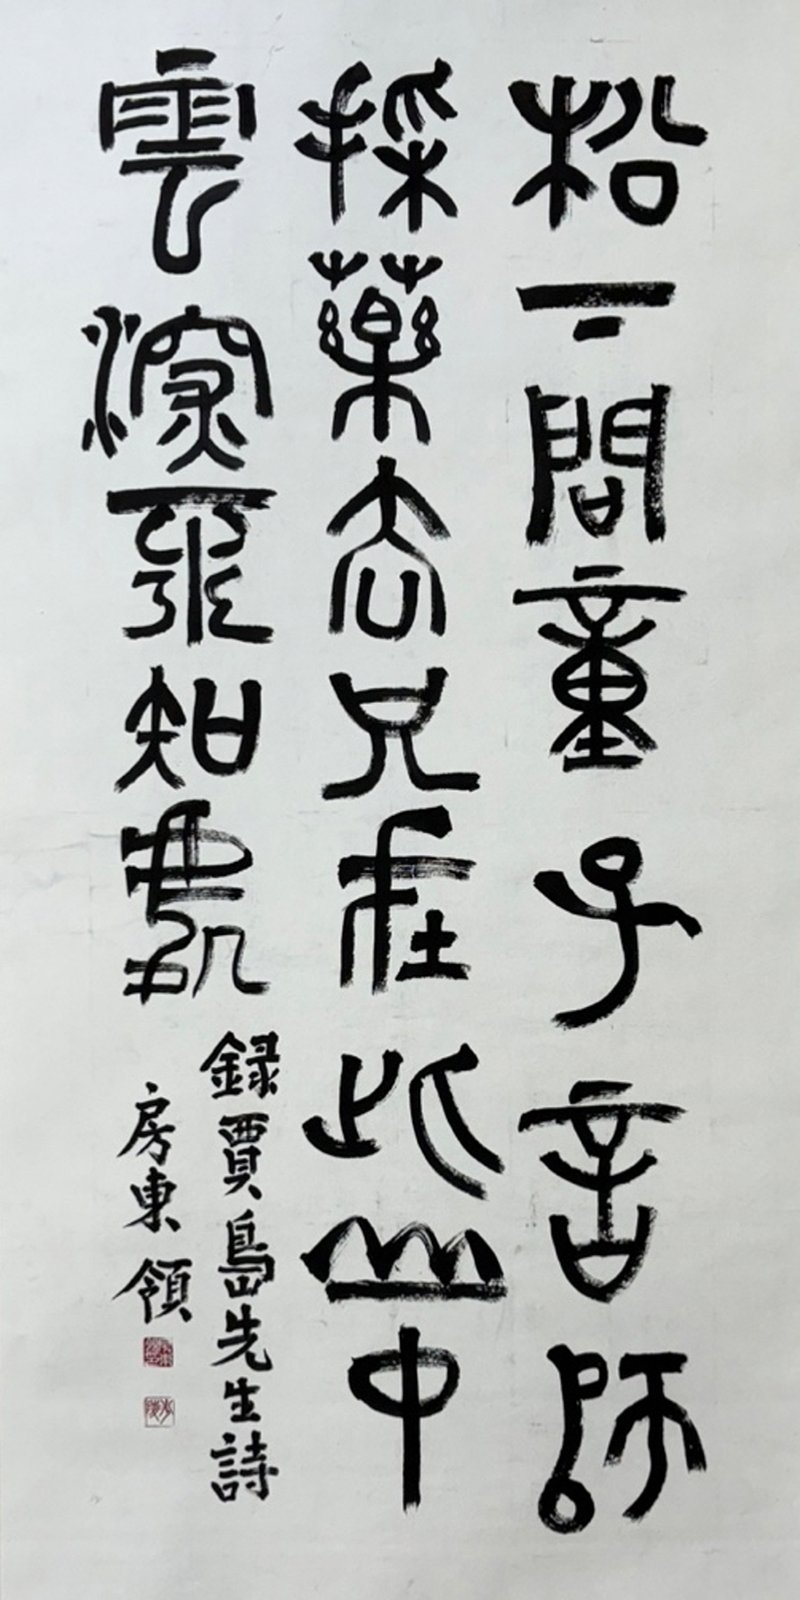 松下問童子言師
採藥去只在此山中
雲深不知處
録賈島先生詩
房東領